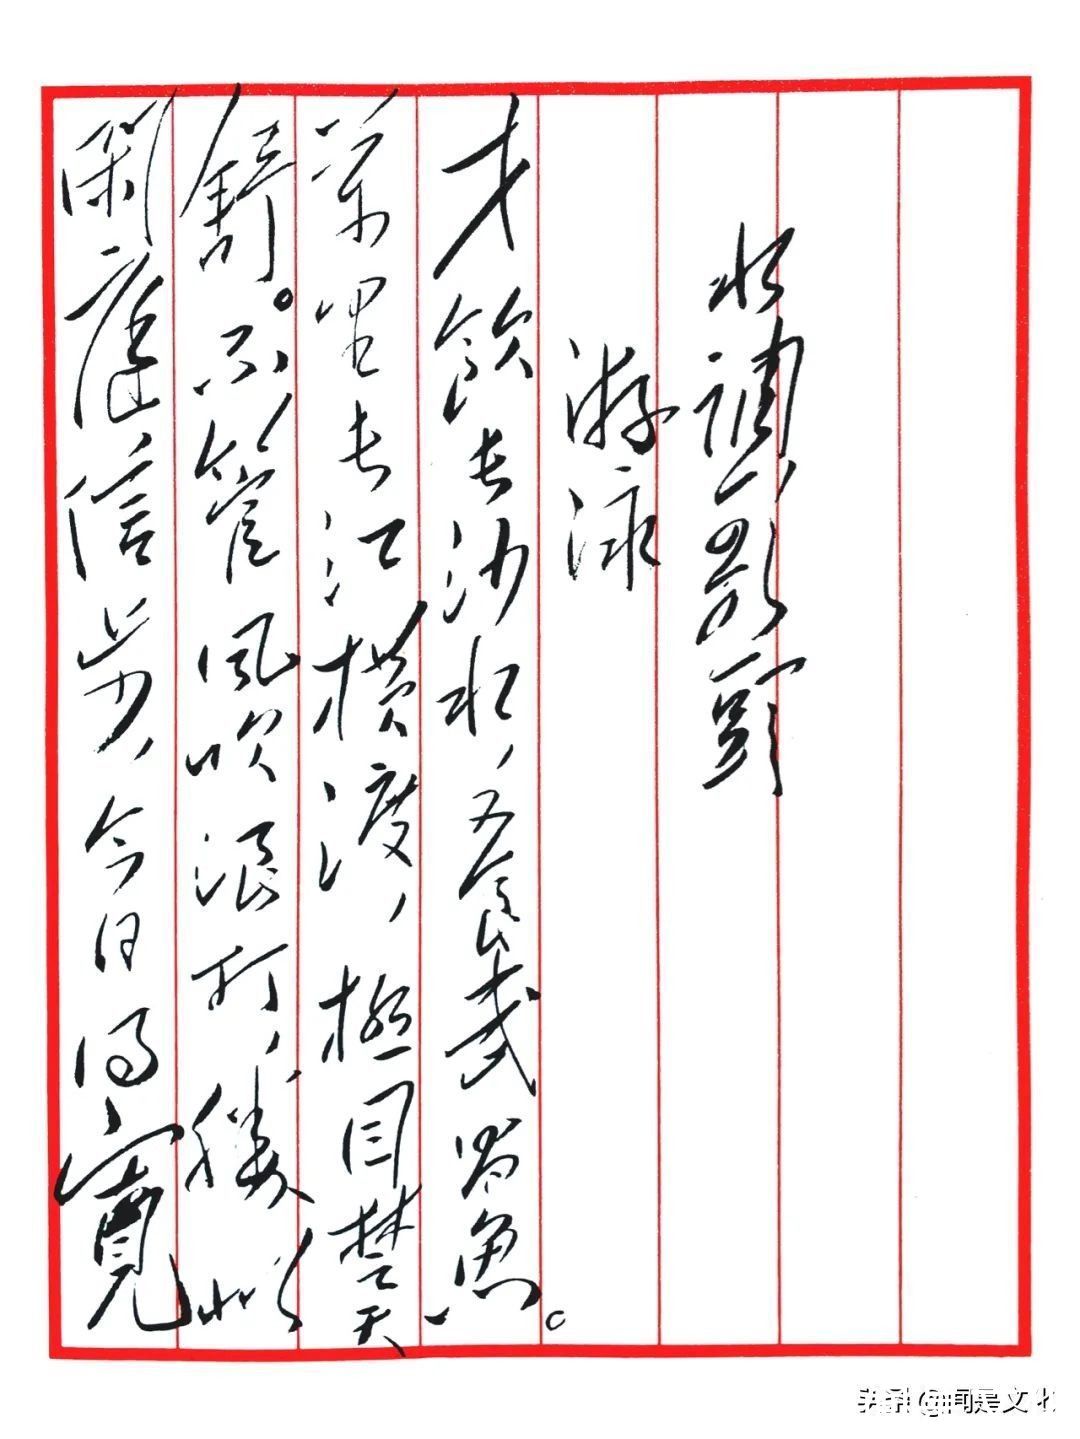 水调歌頭
游泳
才飲长沙水，又食武昌魚。
萬里长江横渡，极目楚天
舒。不管風吹浪打，勝似
閑庭信步，今日得寬
头条@闻是文化